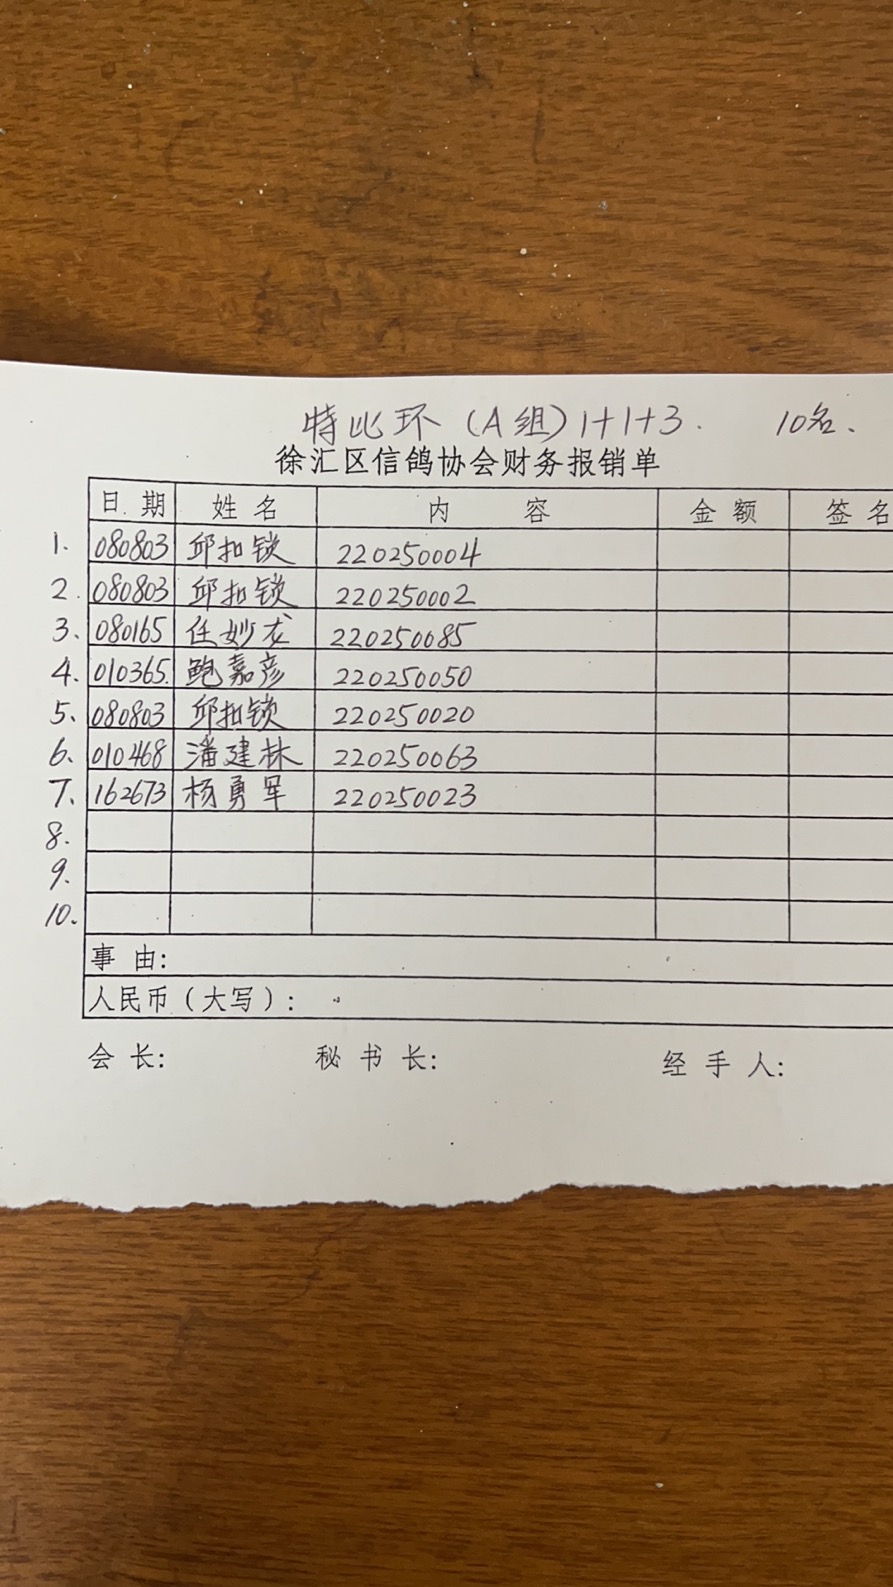 特比环(A组)1+1+3. 10名.
徐汇区信鸽协会财务报销单
日期 姓名 内容 金额 签名
1. 080803 邱扣锁 220250004
2. 080803 邱扣锁 220250002
3、 080165 任妙龙 220250085
4. 010365. 鲍嘉彦 220250050
5、 080803 邱扣锁 220250020
6、 010468 潘建林 220250063
7、 162673 杨勇军 220250023
8.
9.
10.
事由:
人民币(大写):
会长: 秘书长: 经手人: